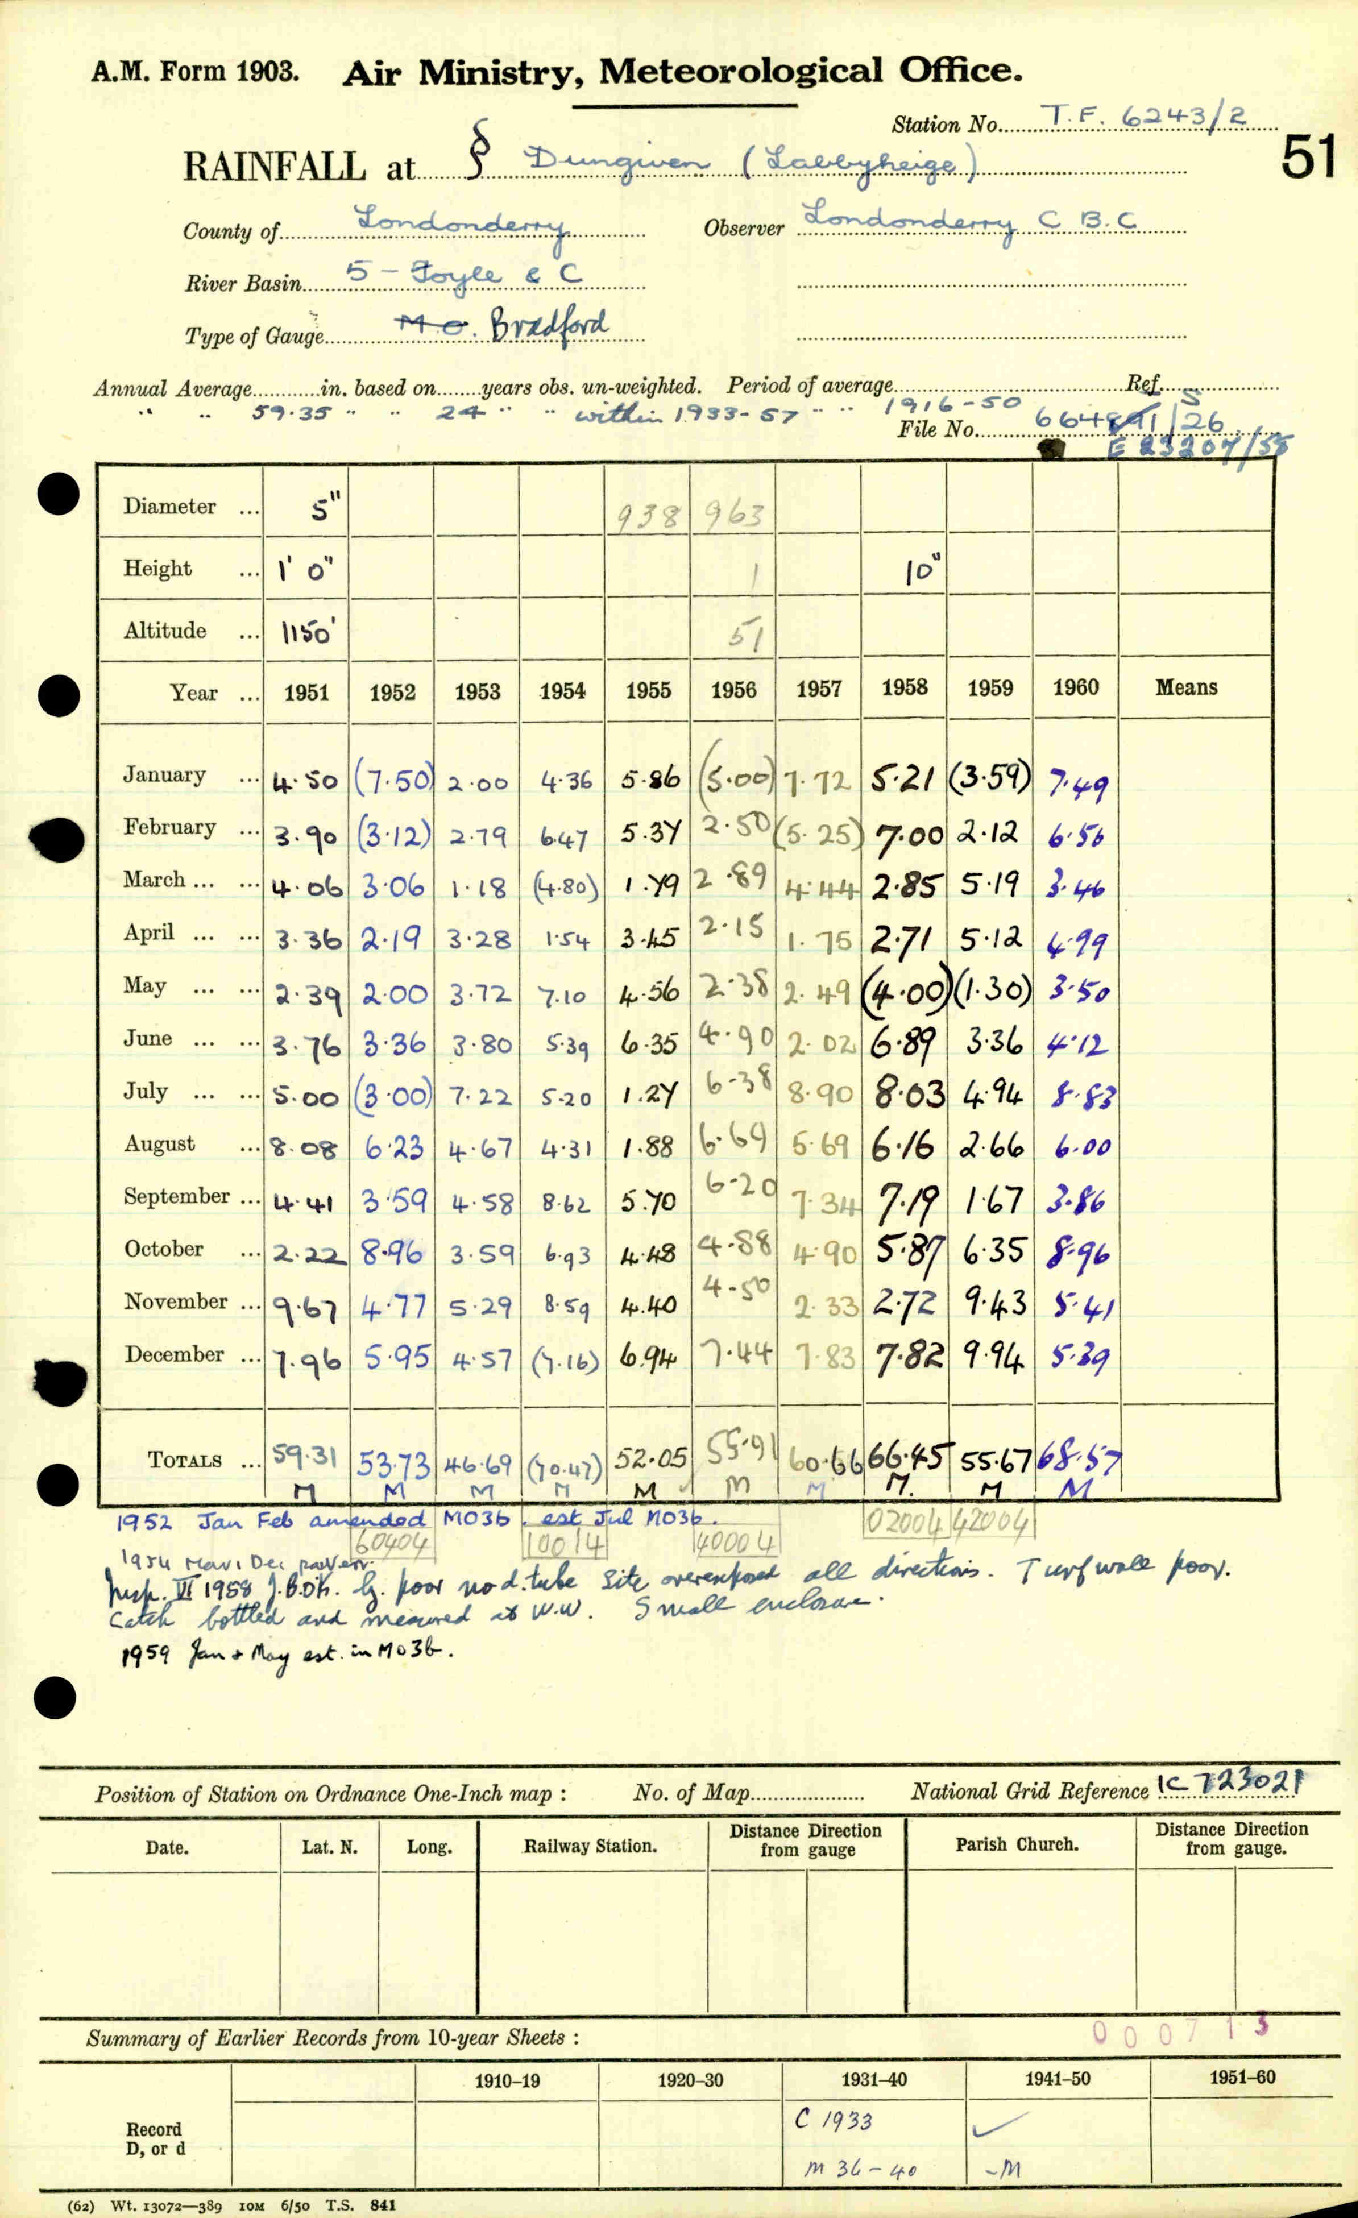 A.M. Form 1903. Air Ministry, Meteorological Office.
Station No. T.F. 6243/2
51
RAINFALL at § Dungiven (Labbyheige)
County of Londonderry Observer Londonderry C B.C
River Basin 5 - Foyle & C
Type of Gauge M O. Bradford
Annual Average............in. based on........years obs. un-weighted. Period of average.......... Ref. S
" " 59.35 " " 24 " " within 1933-57 " " 1916-50
File No. /26
E 23207/58
Diameter ... 5" 938 963
Height ... 1' 0" 1 10"
Altitude ... 1150' 51
Year ... 1951 1952 1953 1954 1955 1956 1957 1958 1959 1960 Means
January ... 4.50 (7.50) 2.00 4.36 5.86 (5.00) 7.72 5.21 (3.59) 7.49
February ... 3.90 (3.12) 2.79 6.47 5.37 2.50 (5.25) 7.00 2.12 6.56
March ... ... 4.06 3.06 1.18 (4.80) 1.79 2.89 4.44 2.85 5.19 3.46
April ... ... 3.36 2.19 3.28 1.54 3.45 2.15 1.75 2.71 5.12 4.99
May ... ... 2.39 2.00 3.72 7.10 4.56 2.38 2.49 (4.00) (1.30) 3.50
June ... ... 3.76 3.36 3.80 5.39 6.35 4.90 2.02 6.89 3.36 4.12
July ... ... 5.00 (3.00) 7.22 5.20 1.27 6.38 8.90 8.03 4.94 8.83
August ... 8.08 6.23 4.67 4.31 1.88 6.69 5.69 6.16 2.66 6.00
September ... 4.41 3.59 4.58 8.62 5.70 6.20 7.34 7.19 1.67 3.86
October ... 2.22 8.96 3.59 6.93 4.48 4.88 4.90 5.87 6.35 8.96
November ... 9.67 4.77 5.29 8.59 4.40 4.50 2.33 2.72 9.43 5.41
December ... 7.96 5.95 4.57 (7.16) 6.94 7.44 7.83 7.82 9.94 5.39
TOTALS ... 59.31 53.73 46.69 (70.47) 52.05 55.91 60.66 66.45 55.67 68.57
M M M M M M M M. M M
1952 Jan Feb amended MO3b. est Jul MO3b.
60404 10014 40004 02004 42004
1954 Mar, Dec
Insp. VI 1958 J.B.Dk. G. poor no d. tube Site overexposed all directions. Turf wall poor.
Catch bottled and measured at W.W. Small enclosure.
1959 Jan + May est. in MO3b.
Position of Station on Ordnance One-Inch map : No. of Map.................... National Grid Reference IC 723021
Date. Lat. N. Long. Railway Station. Distance Direction from gauge Parish Church. Distance Direction from gauge.
Summary of Earlier Records from 10-year Sheets : 000713
1910-19 1920-30 1931-40 1941-50 1951-60
Record D, or d C 1933 ✓
M 36-40 -M
(62) Wt. 13072—389 10M 6/50 T.S. 841